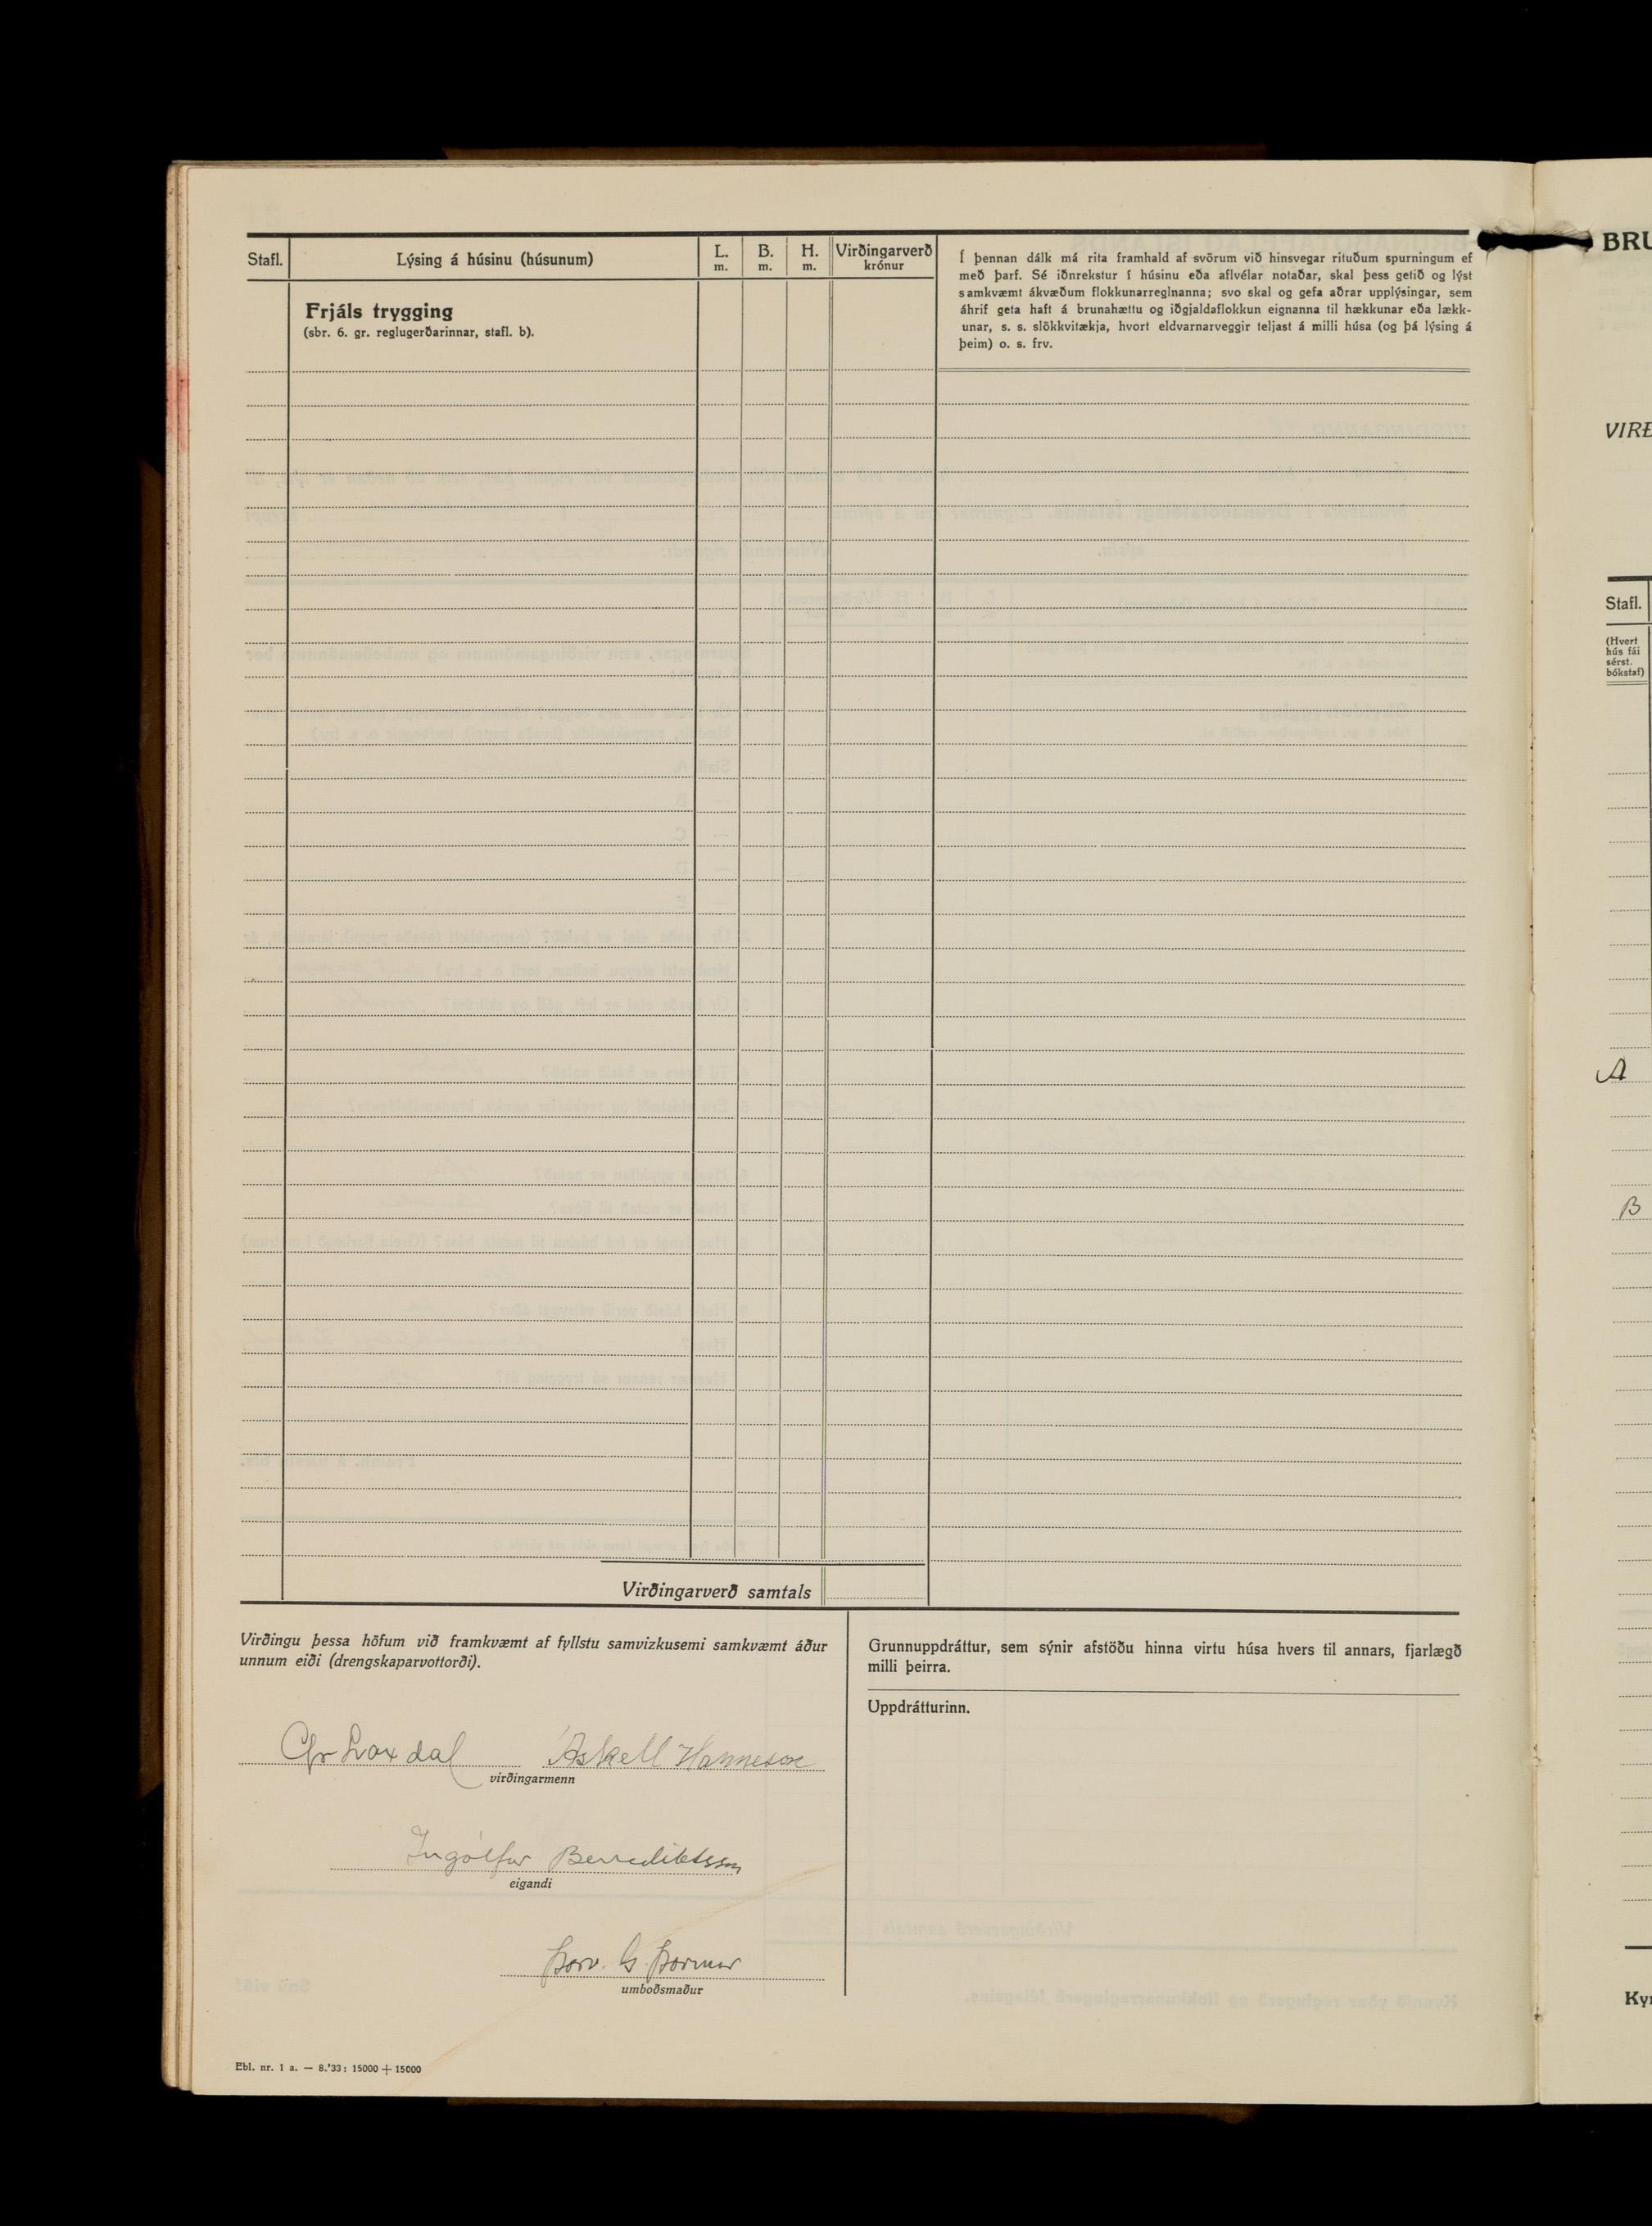 Stafl.
Lýsing á húsinu (húsunum)
L.
m.
B.
m.
H.
m.
Virðingarverð
krónur
Frjáls trygging
(sbr. 6. gr. reglugerðarinnar, stafl. b).
Í þennan dálk má rita framhald af svörum við hinsvegar rituðum spurningum ef
með þarf. Sé iðnrekstur í húsinu eða aflvélar notaðar, skal þess getið og lýst
samkvæmt ákvæðum flokkunarreglnanna; svo skal og gefa aðrar upplýsingar, sem
áhrif geta haft á brunahættu og iðgjaldaflokkun eignanna til hækkunar eða lækk-
unar, s. s. slökkvitækja, hvort eldvarnarveggir teljast á milli húsa (og þá lýsing á
þeim) o. s. frv.
Virðingarverð samtals
Virðingu þessa höfum við framkvæmt af fyllstu samvizkusemi samkvæmt áður
unnum eiði (drengskaparvottorði).
Laxdal Áskell Hannesson
virðingarmenn
Ingólfur Benediktsson
eigandi
Þorv. G. Þormar
umboðsmaður
Grunnuppdráttur, sem sýnir afstöðu hinna virtu húsa hvers til annars, fjarlægð
milli þeirra.
Uppdrátturinn.
Ebl. nr. 1 a. — 8.'33: 15000 + 15000
BRU
VIRÐ
Stafl.
(Hvert
hús fái
sérst.
bókstaf)
A
B
Kyn